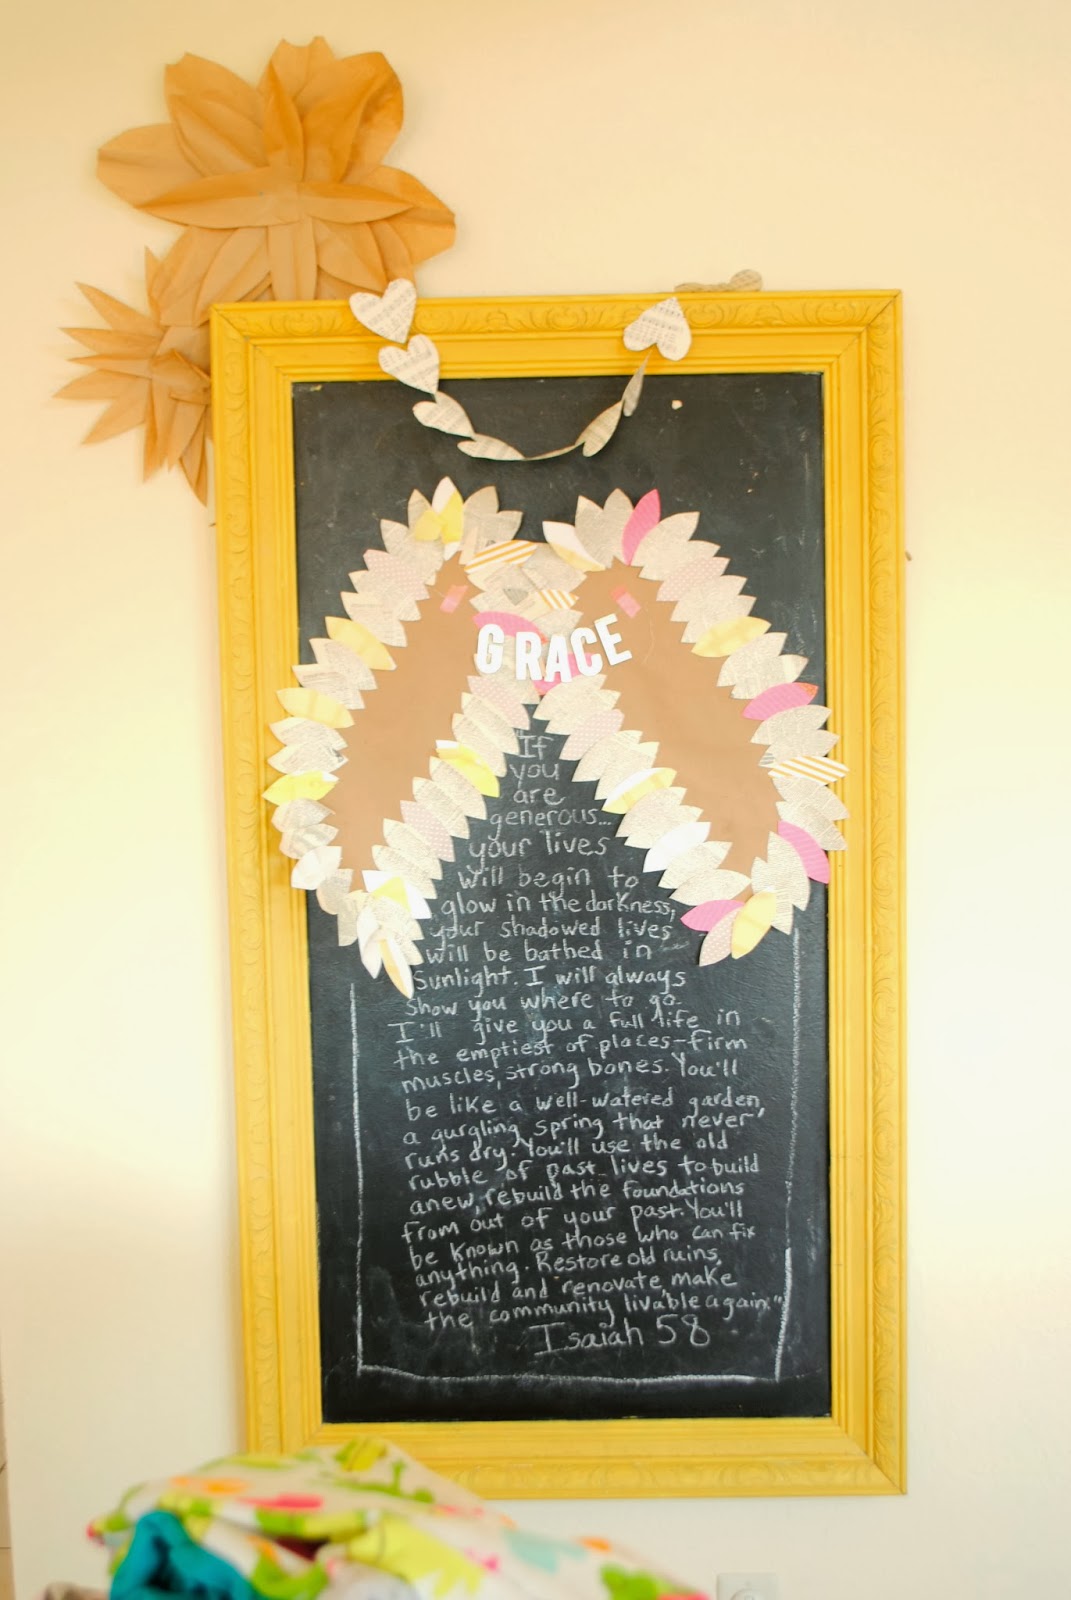 GRACE
"If
you
are
generous...
your lives
will begin to
glow in the darkness,
your shadowed lives
will be bathed in
Sunlight. I will always
show you where to go.
I'll give you a full life in
the emptiest of places-firm
muscles, strong bones. You'll
be like a well-watered garden,
a gurgling spring that never
runs dry. You'll use the old
rubble of past lives to build
anew, rebuild the foundations
from out of your past. You'll
be known as those who can fix
anything. Restore old ruins,
rebuild and renovate, make
the community livable again."
Isaiah 58